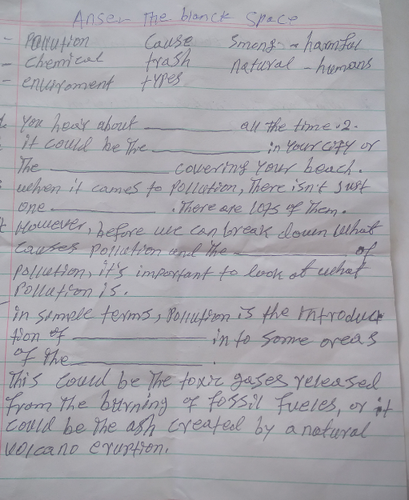 Anser The blanck Space
- Pollution Cause Smong - harmful
- chemical trash natural - humans
- enviroment types
You hear about ____ all the time. 2.
it could be the ____ in your city or
The ____ covering your beach.
when it cames to Pollution, There isn't Just
one ____. There are lots of Them.
However, before we can break down what
causes pollution and the ____ of
pollution, it's important to look at what
Pollution is.
in simple terms, Pollution is the introduc
tion of ____ in to some oreas
of The ____.
This Could be The toxic gases released
from The burning of fossil fueles, or it
could be the ash created by a natural
volcano eruption.